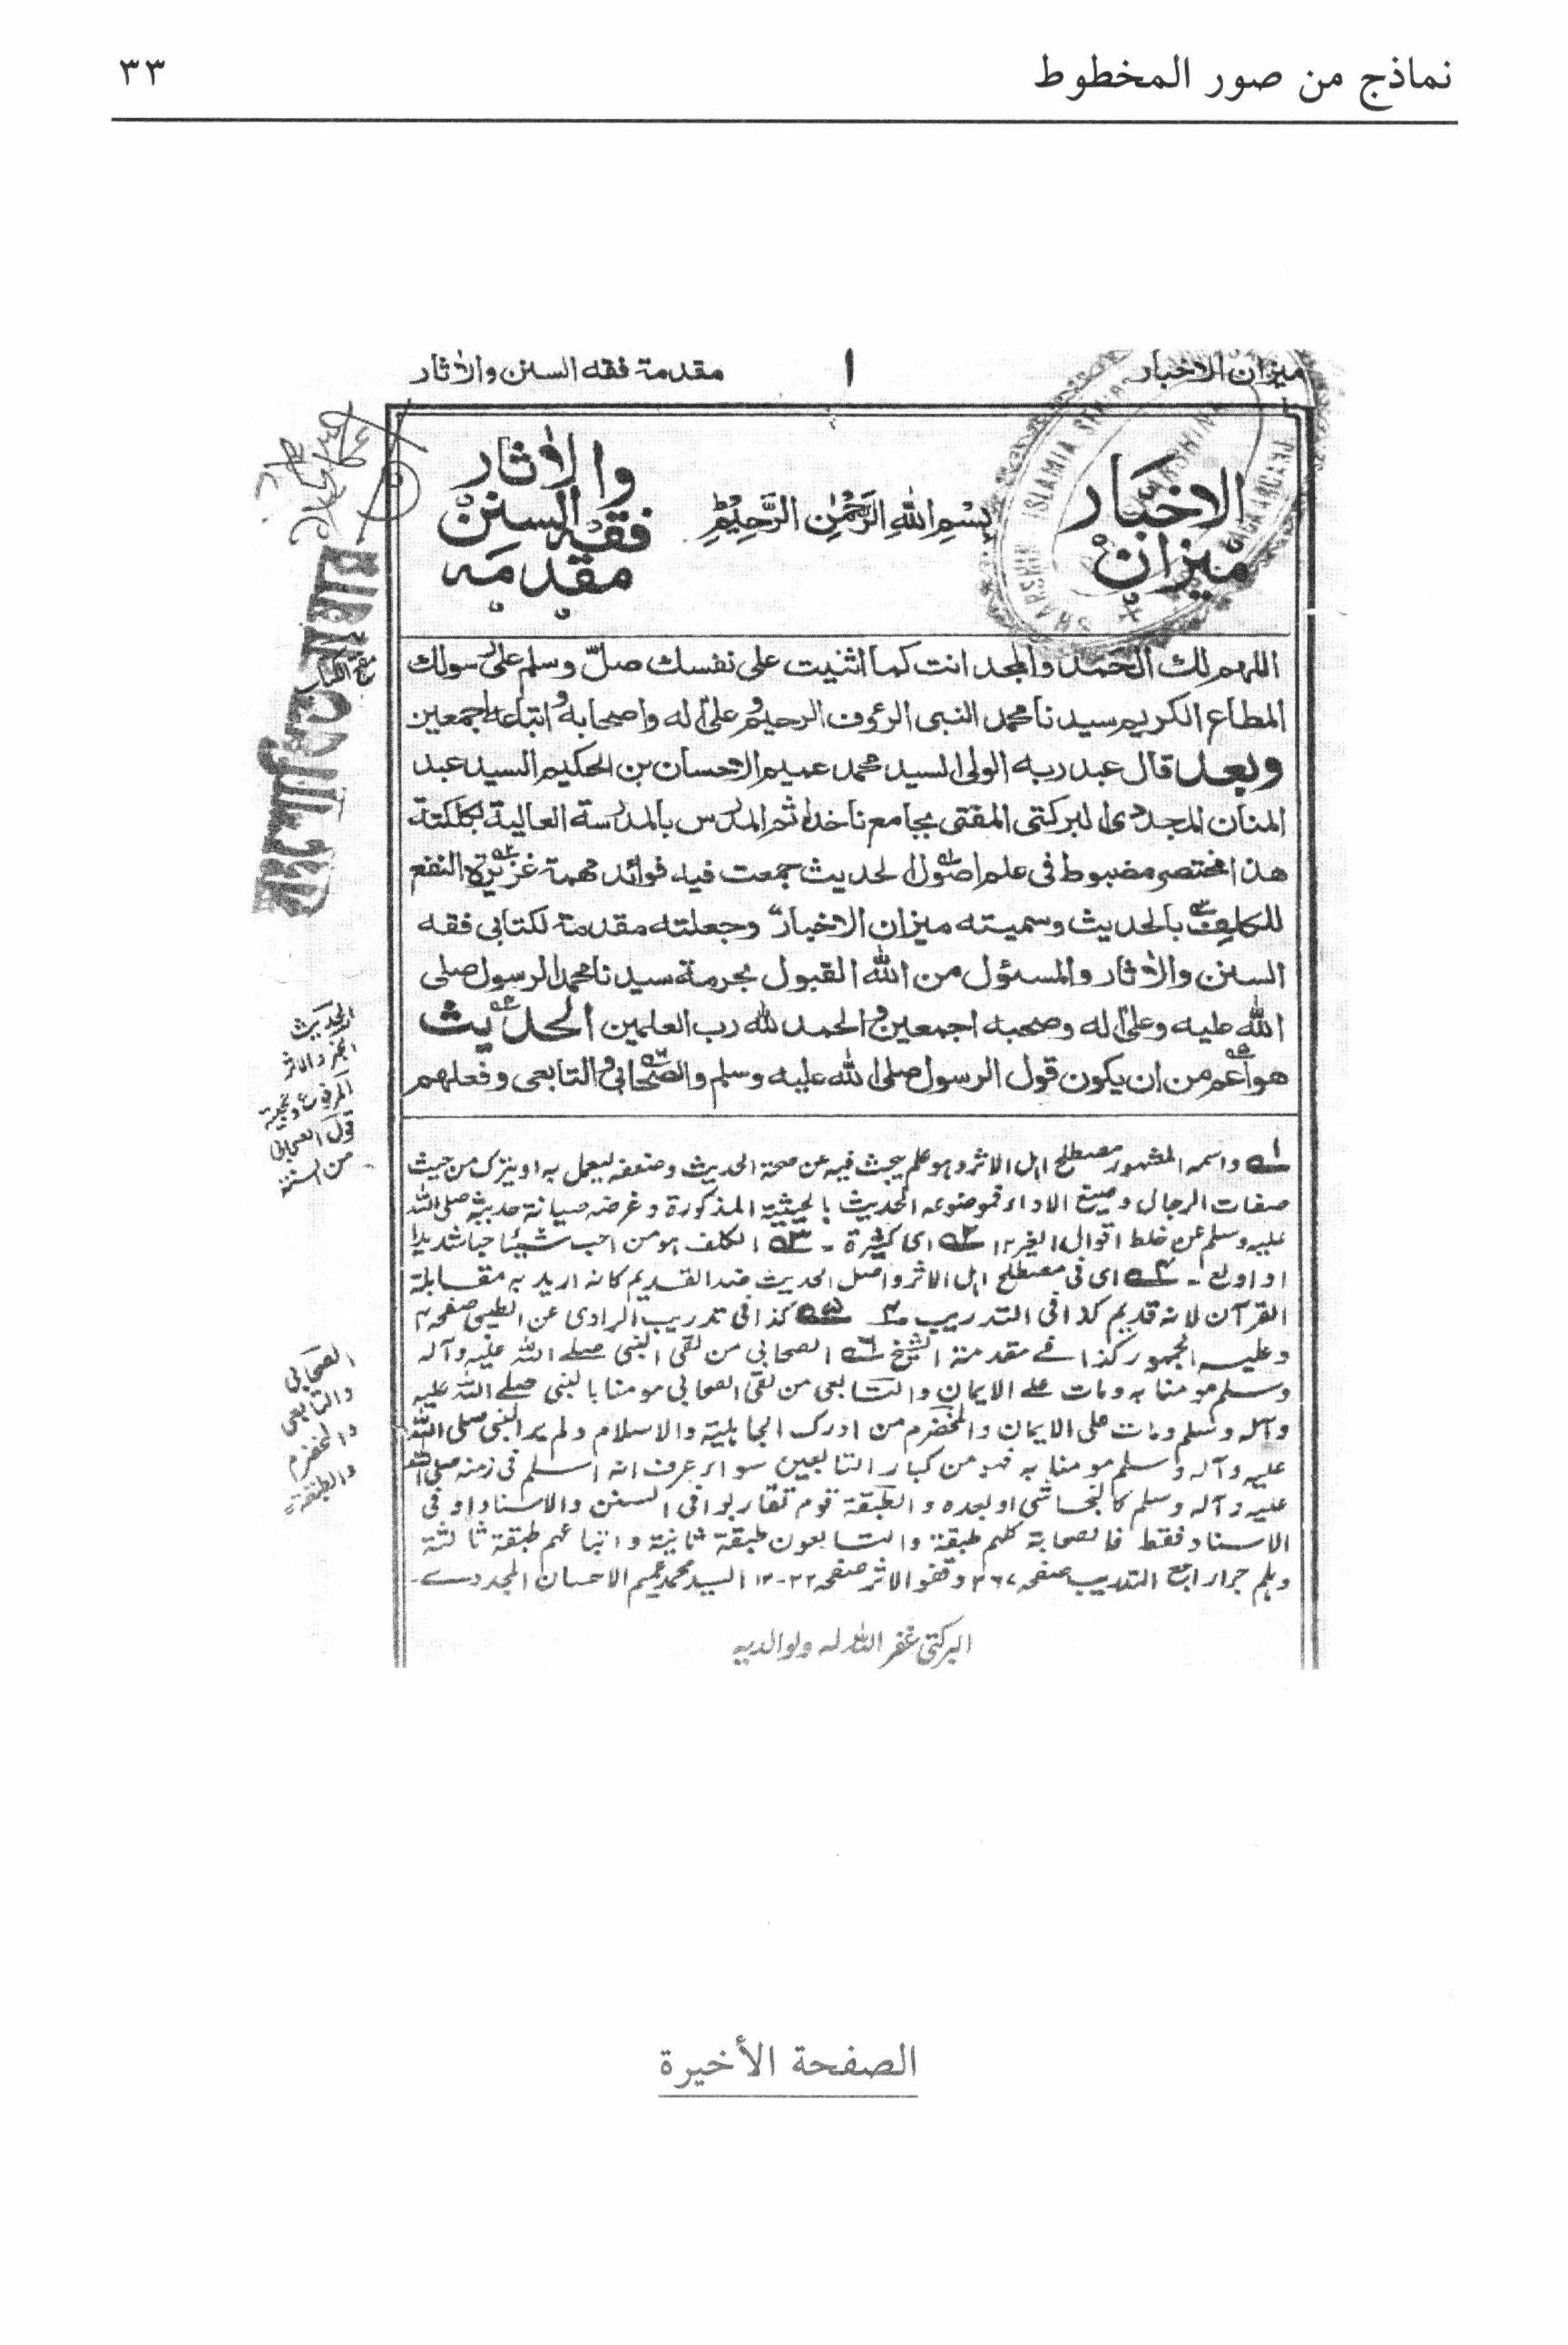 نماذج من صور المخطوط
٣٣
ميزان الاخبار
١
مقدمة فقه السنن والاٰثار
الاخبار
ميزان
بسم الله الرحمن الرحيم
والاٰثار
فقه السنن
مقدمه
اللهم لك الحمد والمجد انت كما اثنيت على نفسك صلّ وسلم على رسولك
المطاع الكريم سيدنا محمد النبى الرؤف الرحيم وعلى اٰله واصحابه واتباعه اجمعين
وبعد قال عبد ربه الولى السيد محمد عميم الاحسان بن الحكيم السيد عبد
المنان المجددى البركتى المفتى بجامع ناخدا ثم المدرس بالمدرسة العالية بكلكتة
هذا مختصر مضبوط فى علم اصول الحديث جمعت فيه فوائد مهمة غزيرة النفع
للكلف بالحديث وسميته ميزان الاخبار وجعلته مقدمة لكتابى فقه
السنن والاٰثار والمسئول من الله القبول بحرمة سيدنا محمد الرسول صلى
الله عليه وعلى اٰله وصحبه اجمعين والحمد لله رب العلمين الحديث
هو اعم من ان يكون قول الرسول صلى الله عليه وسلم والصحابى والتابعى وفعلهم
الحديث
الخبر والاثر
قول الصحابى
من السنة
١ه واسمه المشهور مصطلح اہل الاثر وہو علم يبحث فيه عن صحة الحديث وضعفه ليعمل به او يترك من حيث
صفات الرجال وصيغ الاداء فموضوعه الحديث بالحيثية المذكورة وغرضه صيانة حديثه صلى الله
عليه وسلم عن خلط اقوال الغير ١٢ ٢ه اى كثيرة - ٣ه الكلف ہو من احب شيئا حبا شديدا
او اولع - ٤ه اى فى مصطلح اہل الاثر واصل الحديث ضد القديم كانه اريد به مقابلة
القرآن لانه قديم كذا فى التدريب ٥ه كذا فى تدريب الراوى عن الطيبى صفحه ٤
وعليه الجمهور كذا فے مقدمة الشيخ ٦ه الصحابى من لقى النبى صلے الله عليه وآله
وسلم مومنا به ومات علے الايمان والتابعى من لقى الصحابى مومنا بالنبى صلے الله عليه
وآله وسلم ومات على الايمان والمخضرم من ادرك الجاہلية والاسلام ولم ير النبى صلى الله
عليه وآله وسلم مومنا به فہو من كبار التابعين سواء عرف انه اسلم فى زمنه صلى الله
عليه وآله وسلم كالنجاشى او بعده والطبقة قوم تقاربوا فى السنن والاسناد او فى
الاسناد فقط فالصحابة كلهم طبقة والتابعون طبقة ثانية واتباعهم طبقة ثالثة
وہلم جرا راجع التدريب صفحه ٢٦٧ وقفو الاثر صفحه ٢٢-١٢ السيد محمد عميم الاحسان المجددے-
البركتى غفر الله له ولوالديه
الصحابى
والتابعى
والمخضرم
والطبقة
الصفحة الأخيرة